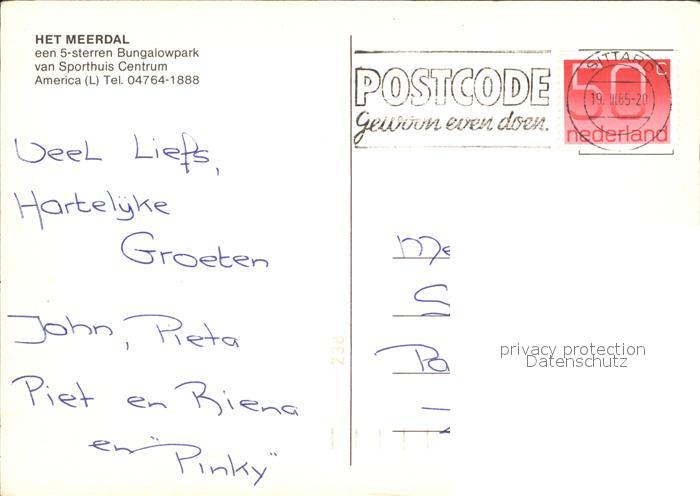 HET MEERDAL
een 5-sterren Bungalowpark
van Sporthuis Centrum
America (L) Tel. 04764-1888
POSTCODE
Gewoon even doen.
SITTARD
50c
nederland
Veel Liefs,
Hartelijke
Groeten
John, Pieta
Piet en Riena
en "Pinky"
238
Me
Pa
privacy protection
Datenschutz